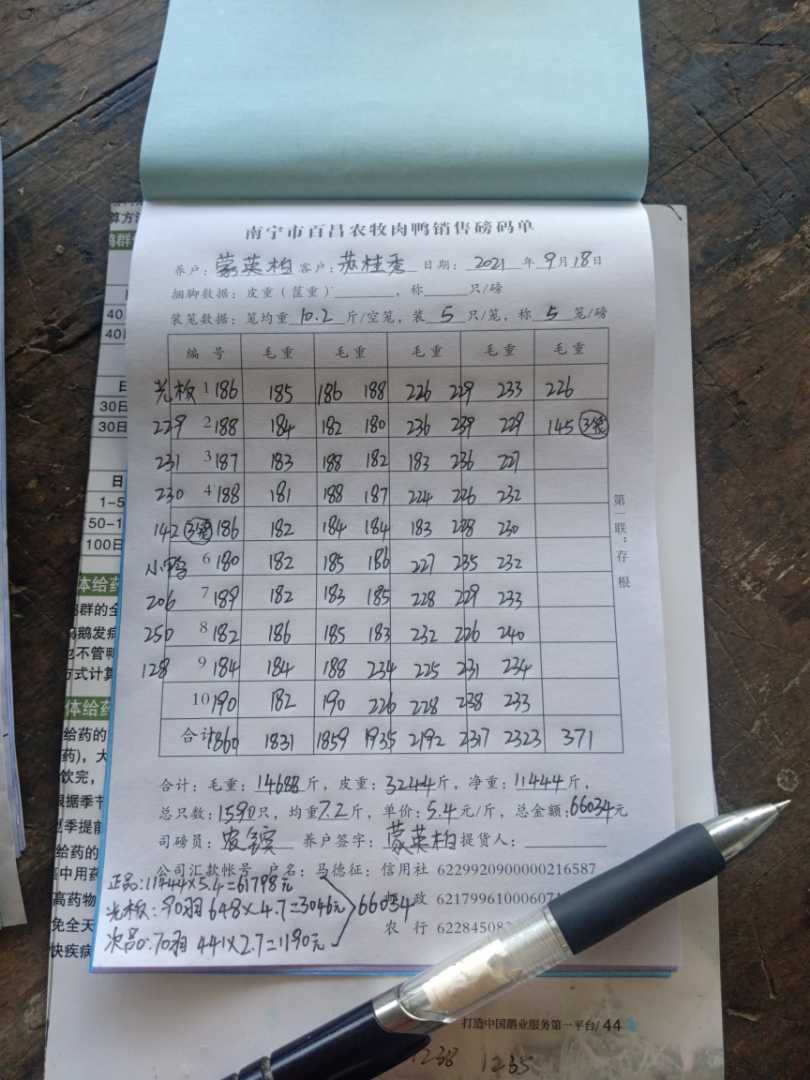 南宁市百昌农牧肉鸭销售磅码单
养户：蒙英柏 客户：苏桂秀 日期：2021 年 9 月 18 日
捆脚数据：皮重（筐重）______，称______只/磅
装笼数据：笼均重 10.2 斤/空笼，装 5 只/笼，称 5 笼/磅
编 号 毛重 毛重 毛重 毛重 毛重
光板 1 186 185 186 188 226 229 233 226
229 2 188 184 182 180 236 239 229 145 ③笼
231 3 187 183 188 182 183 236 227
230 4 188 181 188 187 224 226 232
142 ③笼 186 182 184 184 183 228 230
小鸭 6 180 182 185 186 227 235 232
206 7 189 182 183 185 228 229 233
250 8 182 186 185 183 232 226 240
128 9 184 184 188 234 225 231 234
10 190 182 190 226 228 238 233
合计 1860 1831 1859 1935 2192 2317 2323 371
第一联：存根
合计：毛重：14688斤，皮重：3244斤，净重：11444斤，
总只数：1590只，均重7.2斤，单价：5.4元/斤，总金额：66034元
司磅员： 养户签字：蒙英柏 提货人：
公司汇款帐号 户名：马德征：信用社 6229920900000216587
正品：11444×5.4=61798元
政 62179961000607
光板：90羽 648×4.7=3046元 66034
农 行 62284508
次品：70羽 441×2.7=1190元
打造中国鹅业服务第一平台/ 44
1238 1235
算方
40
40
日
30日
30日
日
1-5
50-1
100日
体给药
鸭群的全
鸭鹅发病
也不管鸭
方式计算
体给药
给药的
药)，大
饮完，
根据季节
夏季提前
给药的
中用药
高药物
免全天
快疾病